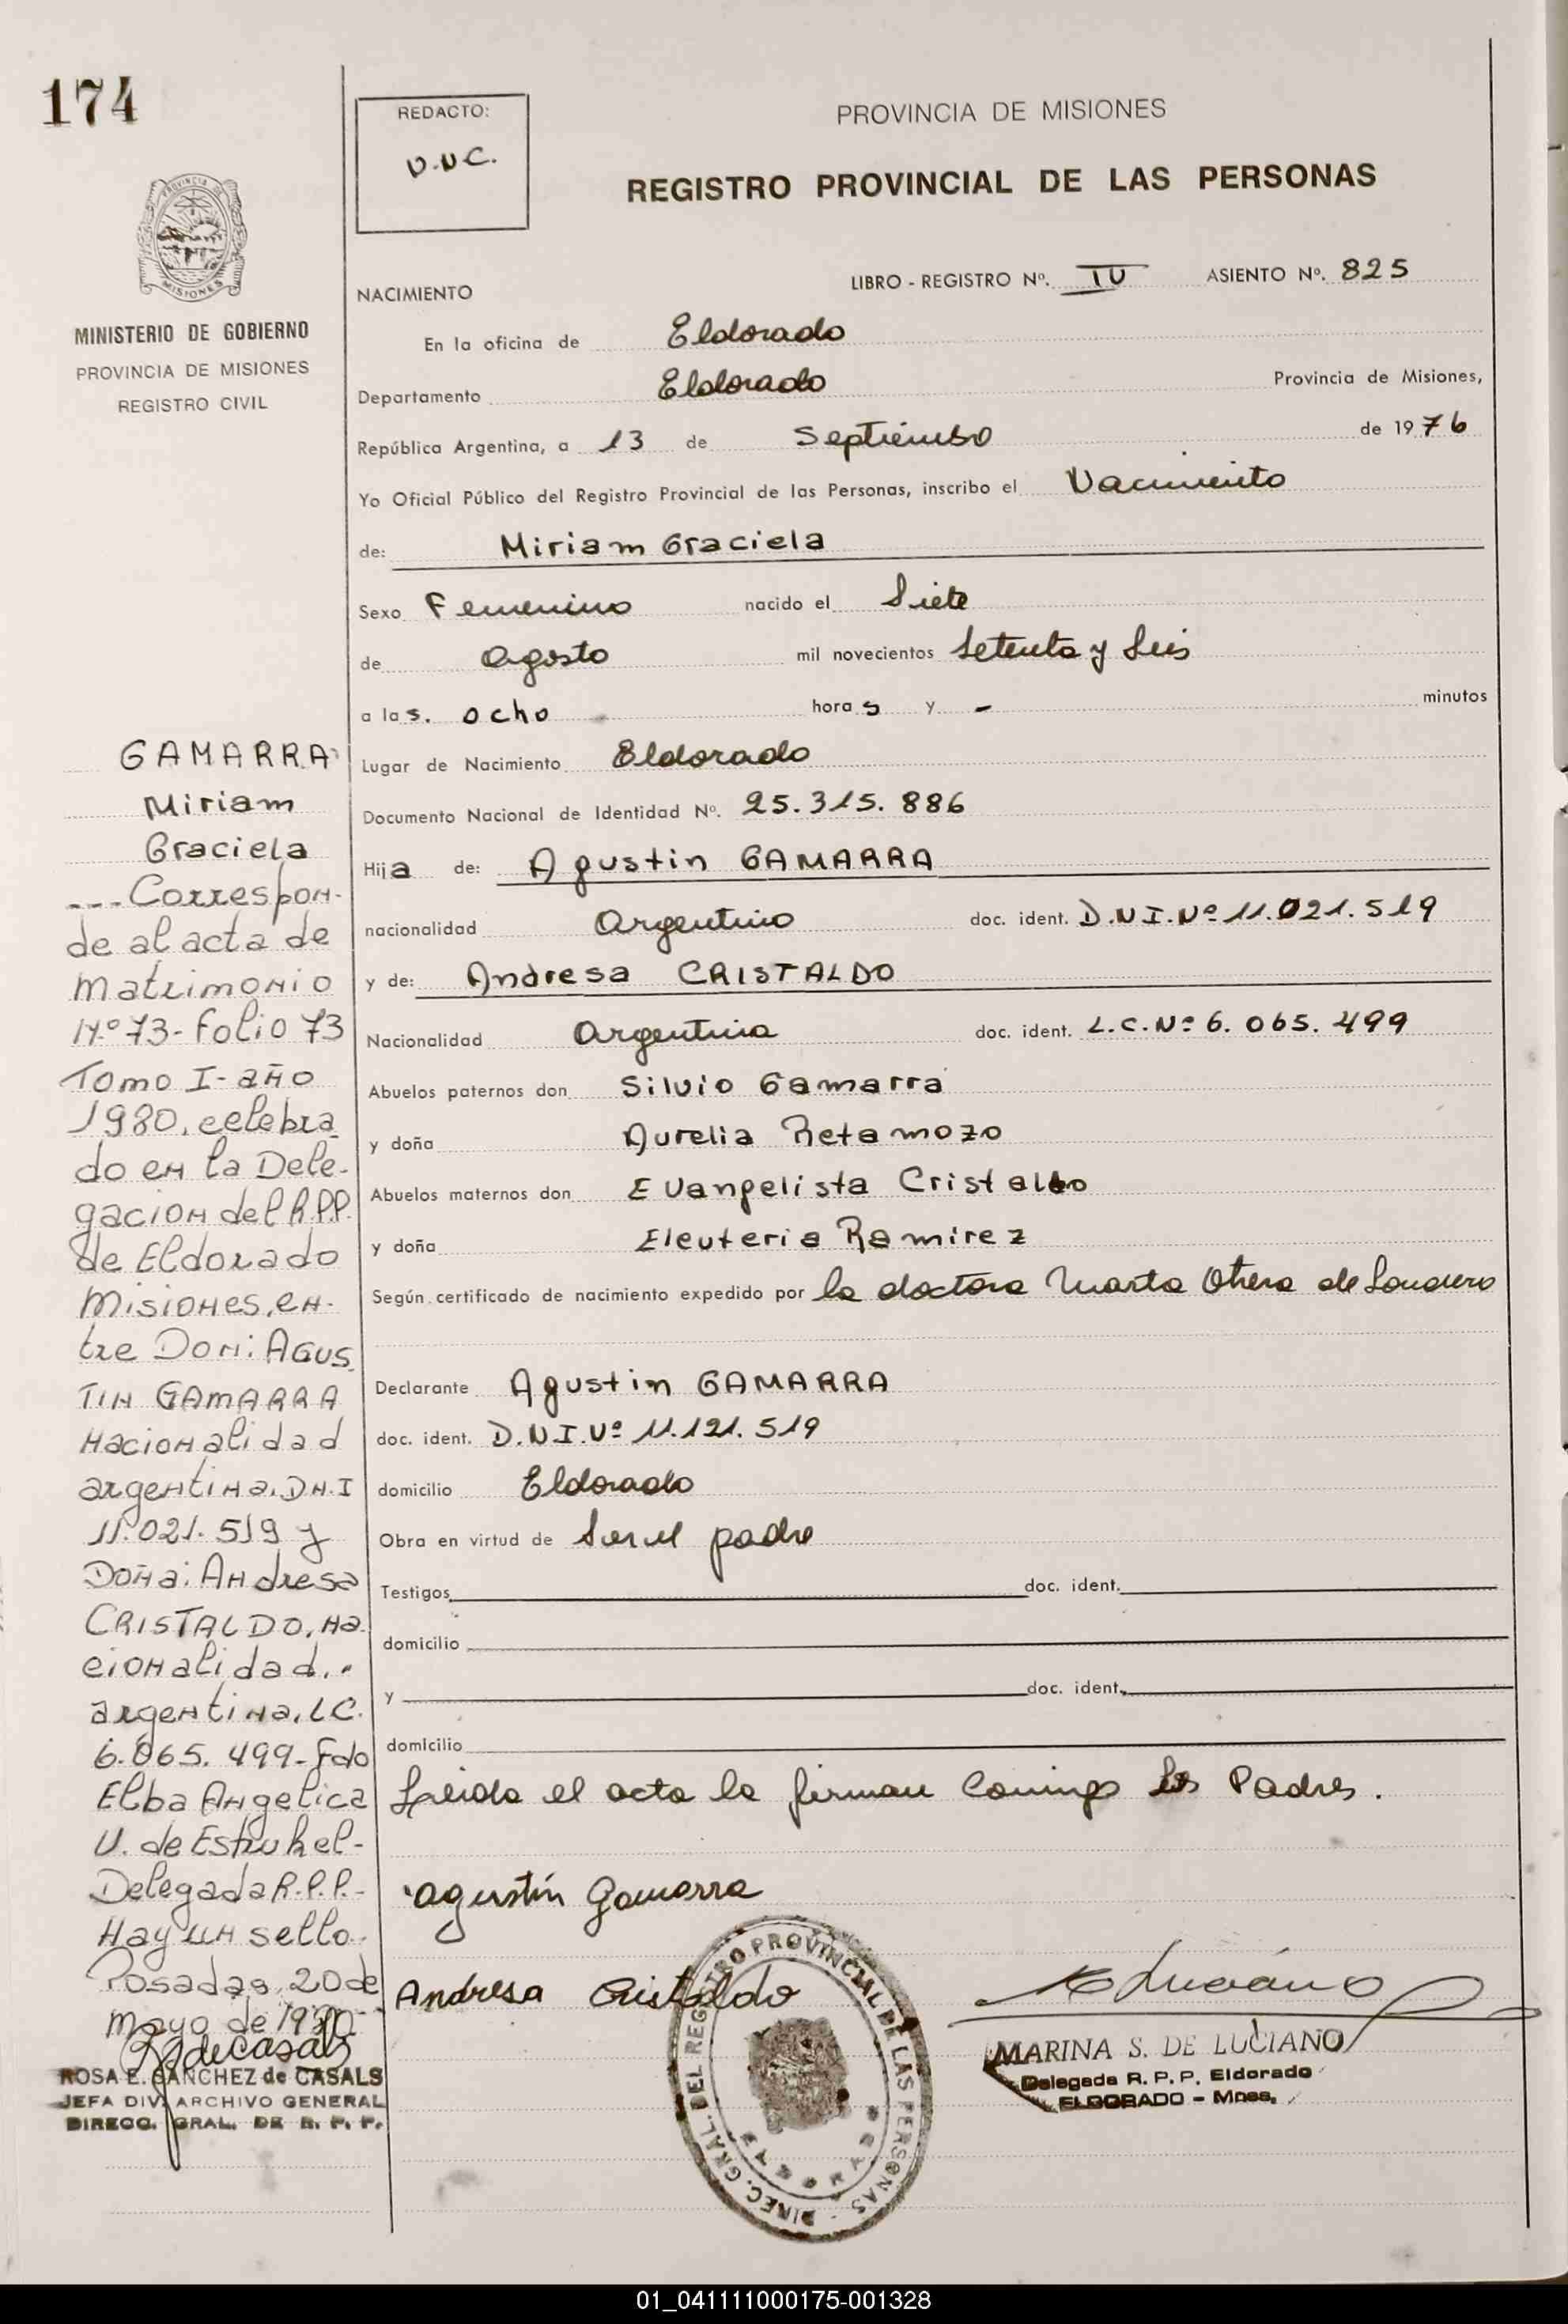 174
REDACTO:
V.N.C.
PROVINCIA DE MISIONES
REGISTRO PROVINCIAL DE LAS PERSONAS
PROVINCIA DE
MISIONES
MINISTERIO DE GOBIERNO
PROVINCIA DE MISIONES
REGISTRO CIVIL
NACIMIENTO LIBRO - REGISTRO Nº. IV ASIENTO Nº. 825
En la oficina de Eldorado
Departamento Eldorado Provincia de Misiones,
República Argentina, a 13 de Septiembre de 1976
Yo Oficial Público del Registro Provincial de las Personas, inscribo el Nacimiento
de: Miriam Graciela
Sexo Femenino nacido el Siete
de agosto mil novecientos Setenta y Seis
a las. ocho horas y - minutos
Lugar de Nacimiento Eldorado
Documento Nacional de Identidad Nº. 25.315.886
Hija de: Agustin GAMARRA
nacionalidad Argentino doc. ident. D.N.I.Nº 11.021.519
y de: Andresa CRISTALDO
Nacionalidad Argentina doc. ident. L.C.Nº 6.065.499
Abuelos paternos don Silvio Gamarra
y doña Aurelia Retamozo
Abuelos maternos don Evangelista Cristaldo
y doña Eleuteria Ramirez
Según certificado de nacimiento expedido por la doctora Marta Otero de
Declarante Agustin GAMARRA
doc. ident. D.N.I.Nº 11.121.519
domicilio Eldorado
Obra en virtud de Ser el padre
Testigos doc. ident.
domicilio
y doc. ident.
domicilio
Leida el acta la firman conmigo los Padres.
Agustín Gamarra
Andresa Cristaldo
GAMARRA
Miriam
Graciela
---Correspon-
de al acta de
matrimonio
N.º 73-Folio 73
Tomo I-año
1980, celebra
do en la Dele-
gacion del R.P.P.
de Eldorado
Misiones, en-
tre Don: AGUS
TIN GAMARRA
nacionalidad
argentina. DN.I
11.021.519 y
Doña: Andresa
CRISTALDO, na
cionalidad.
argentina, LC.
6.065.499-Fdo
Elba Angelica
V. de Estrukel-
Delegada R.P.P.-
Hay un sello.
Posadas, 20 de
mayo de
R S de Casals
ROSA E. SANCHEZ de CASALS
JEFA DIV. ARCHIVO GENERAL
DIRECC. GRAL. DE R. P. P.
DIREC. GRAL. DEL REGISTRO PROVINCIAL DE LAS PERSONAS
ELDORADO
MARINA S. DE LUCIANO
Delegada R. P. P. Eldorado
ELDORADO - Mnes.
01_041111000175-001328